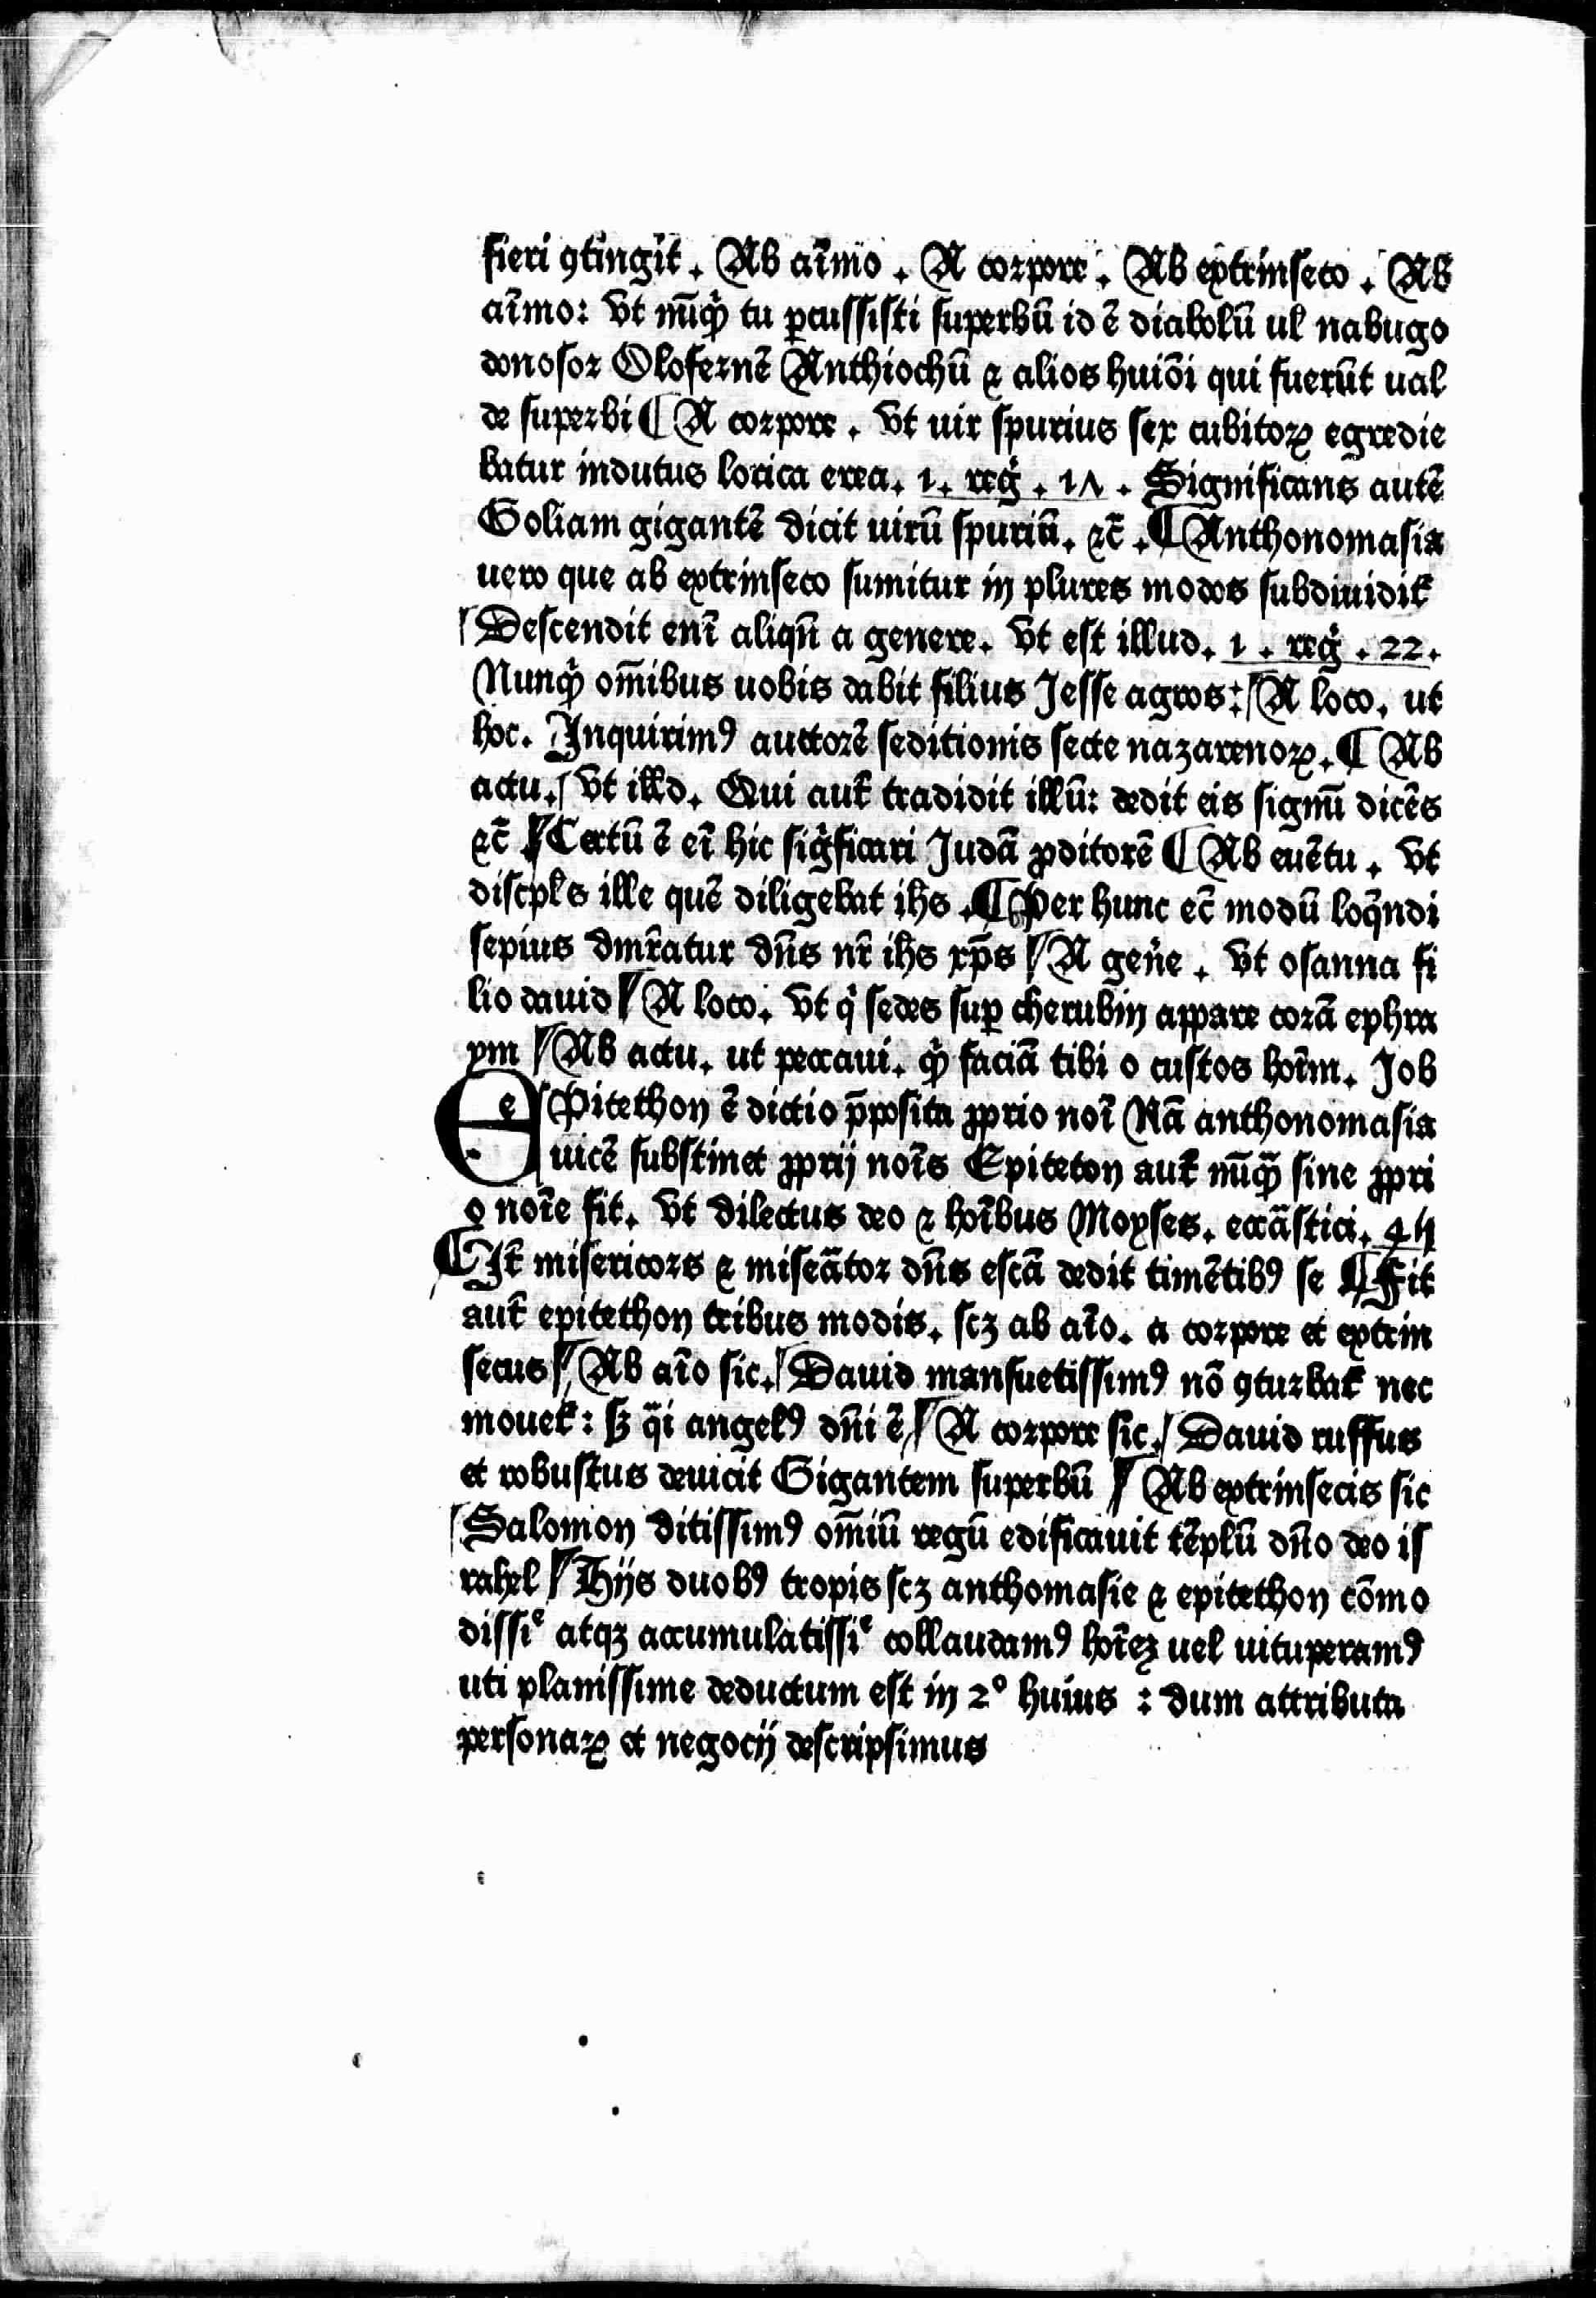 fieri ꝯtingit. Ab aīmo. A corpore. Ab extrinseco. Ab
aīmo: vt nūqͥd tu ꝑcussisti superbū id ē diabolū ul nabugo
donosor Olofernē Anthiochū ⁊ alios huiōi qui fuerūt ual
de superbi ¶ A corpore. vt uir spurius sex cubitoꝝ egredie
batur indutus lorica erea. 1. reg̊. 17. Significans autē
Goliam gigantē dicit uirū spuriū. ⁊c̄. ¶ Anthonomasia
uero que ab extrinseco sumitur in plures modos subdiuidit᷑
Descendit enī aliqn̄ a genere. vt est illud. 1. reg̊. 22.
Nunqͥd om̄ibus uobis dabit filius Jesse agros: A loco. ut
hoc. Inquirimꝰ auctorē seditionis secte nazarenoꝝ. ¶ Ab
actu. vt illd. Qui aut̄ tradidit illū: dedit eis signū dicēs
⁊c̄ Certū ē eī hic sigͥficari Judā ꝓditorē ¶ Ab euētu. vt
discpl̄s ille quē diligebat ih̄s. ¶ Per hunc ec̄ modū loqn̄di
sepius dn̄ratur dn̄s nr̄ ih̄s xp̄s A gen̄e. vt osanna fi
lio dauid A loco. vt qͥ sedes suꝑ cherubin appare corā ephra
ym Ab actu. ut peccaui. qͥd faciā tibi o custos hoīm. Job
EPitethon ē dictio p̄posita ꝓprio noī Nā anthonomasia
uicē substinet ꝓprij noīs Epiteton aut̄ nūqͣ sine ꝓpri
o noīe fit. vt dilectus deo ⁊ hoībus Moyses. eccāstici. 45
¶ It̄ misericors ⁊ miseātor dn̄s escā dedit timētibꝰ se ¶ Fit
aut̄ epitethon tribus modis. scꝫ ab aīo. a corpore et extrin
secus Ab aīo sic. Dauid mansuetissimꝰ nō ꝯturbat᷑ nec
mouet᷑: sꝫ qͣi angelꝰ dn̄i ē A corpore sic. Dauid ruffus
et robustus deuicit Gigantem superbū Ab extrinsecis sic
Salomon ditissimꝰ om̄iū regū edificauit tēplū dn̄o deo is
rahel Hijs duobꝰ tropis scꝫ anthomasie ⁊ epitethon cōmo
dissiᵉ atqꝫ accumulatissiᵉ collaudamꝰ hoīeꝫ uel uituperamꝰ
uti planissime deductum est in 2º huius : dum attributa
personaꝝ et negocij descripsimus